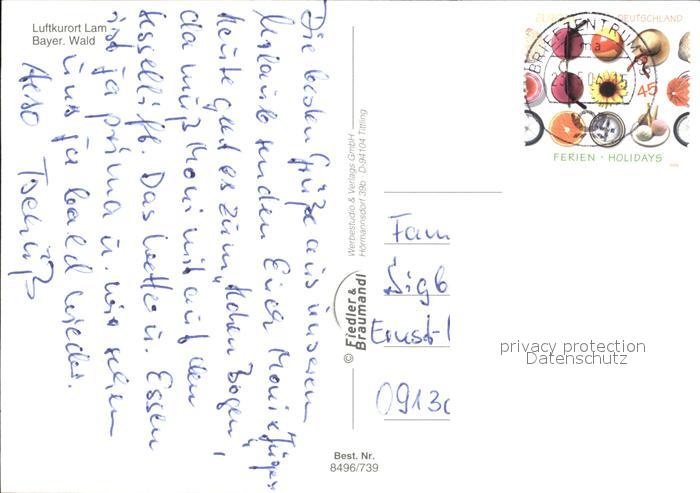 Luftkurort Lam
Bayer. Wald
Die besten Grüße aus unserem
Urlaub senden Euch Moni & Jürgen
heute geht es zum "Hohen Bogen",
da muß Moni mit auf den
Sessellift. Das Wetter u. Essen
ist ja prima u. wir sehen
uns ja bald wieder.
Also Tschüß
Werbestudio & Verlags GmbH
Hörmannsdorf 39b · D-94104 Tittling
© Fiedler &
Braumandl
Best. Nr.
8496/739
DEUTSCHLAND
BRIEFZENTRUM
45
FERIEN · HOLIDAYS
Fam
Sigb
Ernst-
0913
privacy protection
Datenschutz